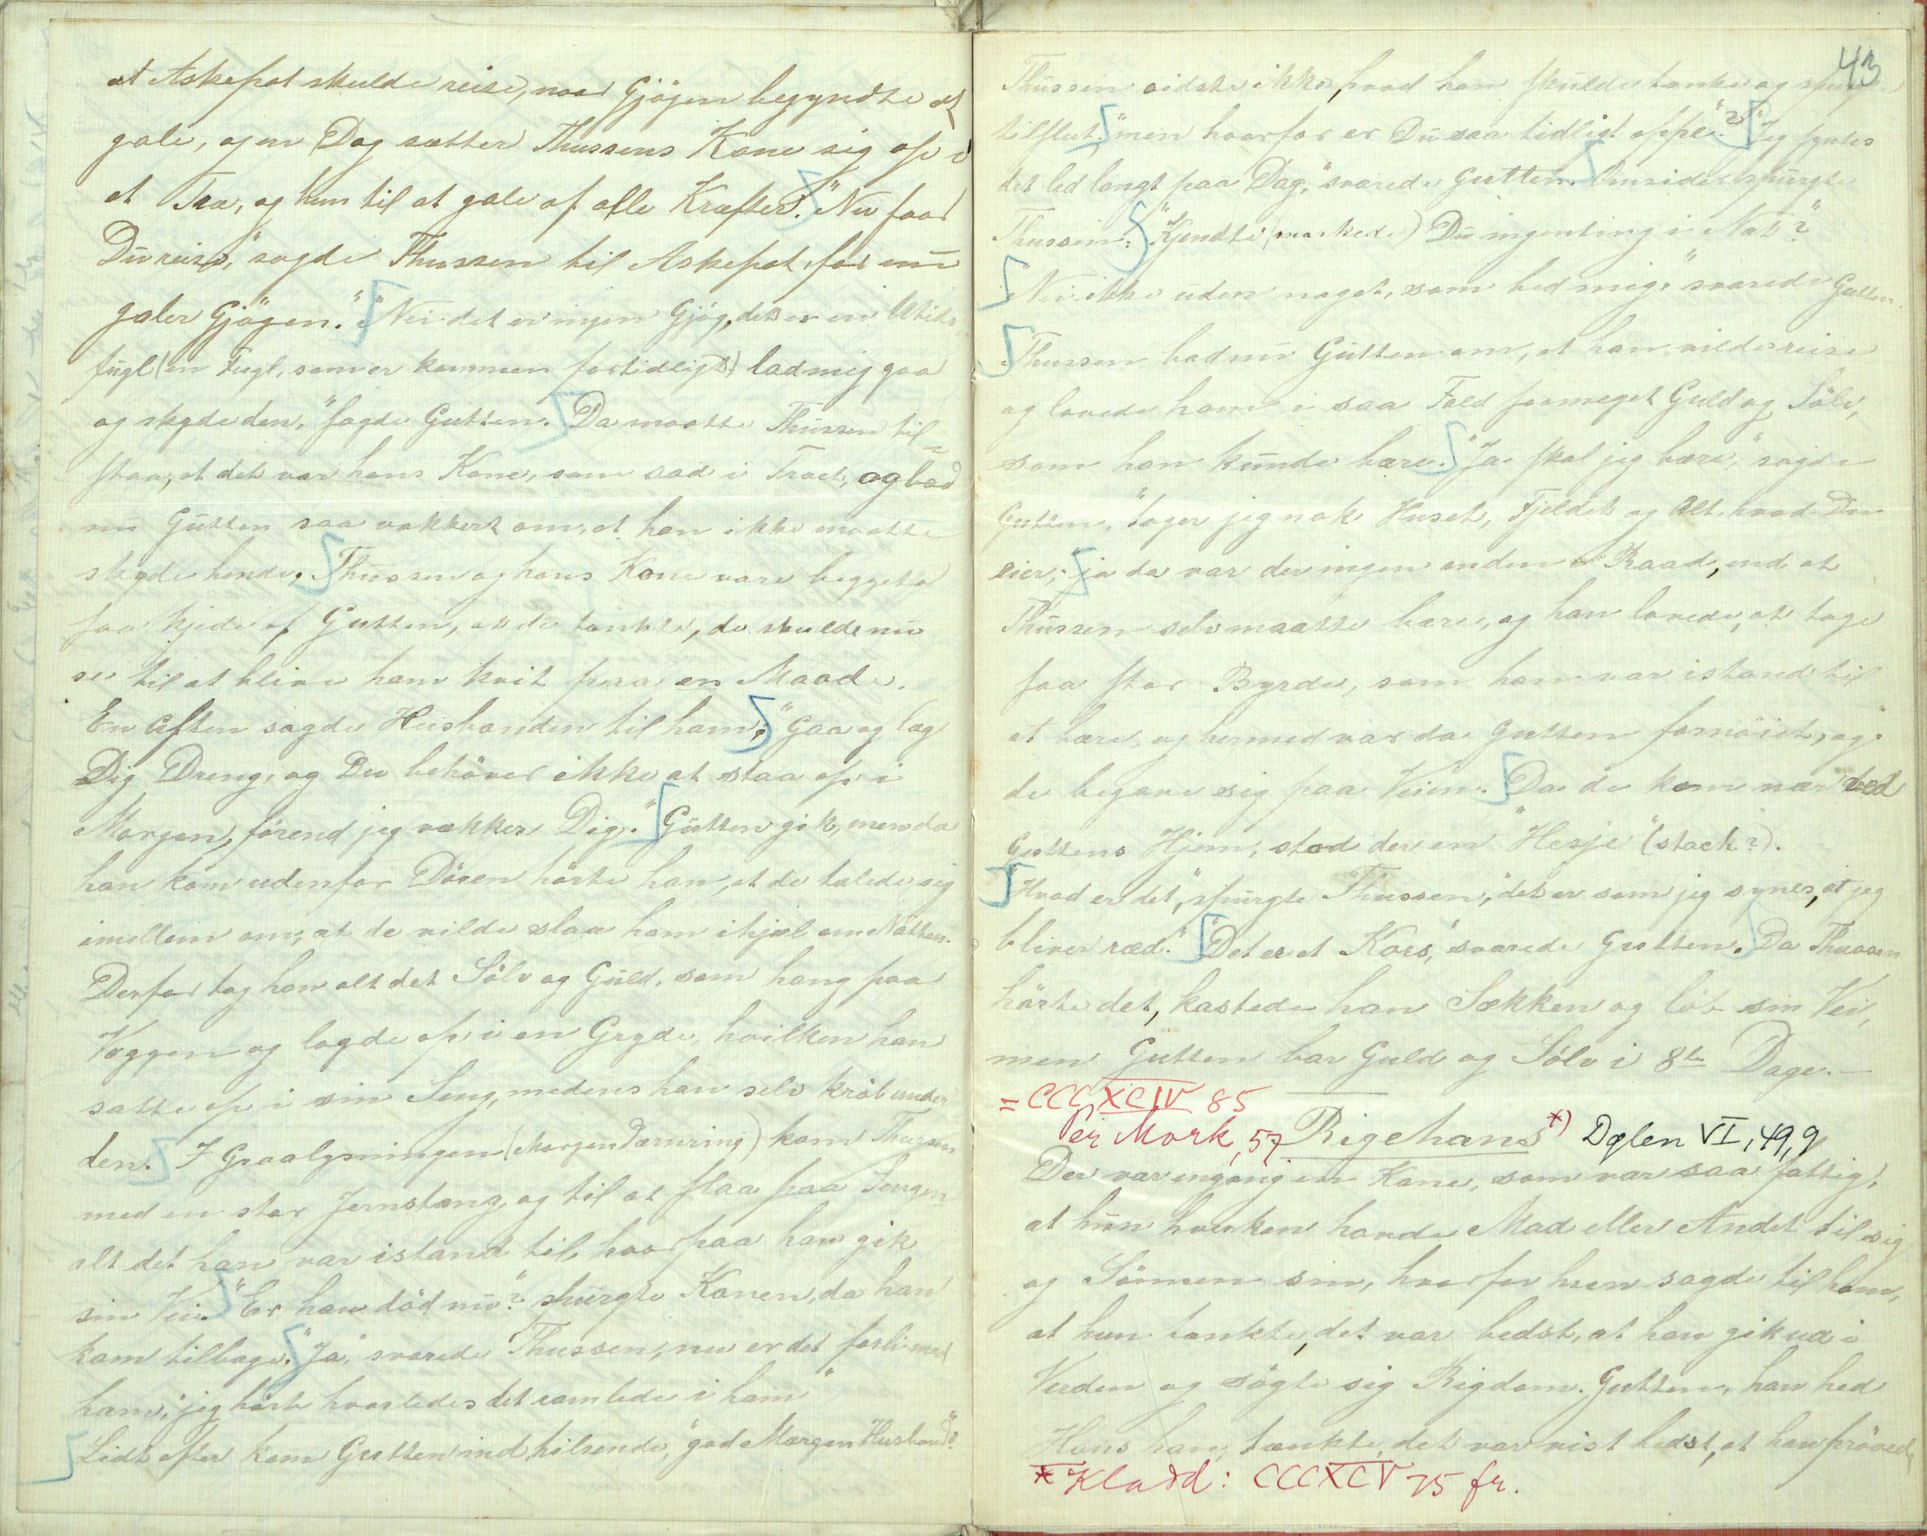 at Askepot skulde reise, naar Gjøgen begyndte at
gale, og en Dag sætter Thussens Kone sig op i
et Træ, og hun til at gale af alle Kræfter. "Nu faar
Du reise," sagde Thussen til Askepot, for nu
galer Gjøgen." "Nei det er ingen Gjøg, det er en Utids
fugl (en Fugl, som er kommen fortidligt) lad mig gaa
og skyde den," sagde Gutten. Da maatte Thussen til-
staa, at det var hans Kone, som sad i Træet, og bad
nu Gutten saa vakkert om, at han ikke maatte
skyde hende. Thussen og hans Kone vare begge to
saa kjede af Gutten, at de tænkte, de skulde nu
se til at blive ham kvit paa en Maade.
En Aften sagde Husbonden til ham: "Gaa og læg
Dig Dreng, og Du behöver ikke at staa op i
Morgen, förend jeg vækker Dig." Gutten gik, men da
han kom udenfor Dören hörte han, at de talede sig
imellem om, at de vilde slaa ham ihjel om Natten.
Derfor tog han alt det Sölv og Guld, som hang paa
Væggen og lagde op i en Gryde, hvilken han
satte op i sin Seng, medens han selv kröb under
den. I Graalysningen (Morgendæmring) kom Thussen
med en stor Jernstang og til at slaa paa Sengen
alt det han var istand til, hvorpaa han gik
sin Vei. "Er han död nu?" spurgte Konen, da han
kom tilbage. "Ja" svarede Thussen, nu er det forbi med
ham, "jeg hörte hvorledes det ramlede i ham"
Lidt efter kom Gutten ind hilsende, "god Morgen Husbond"?
43
Thussen vidste ikke, hvad han skulde tænke og spurgte
tilslut, "men hvorfor er Du saa tidligt oppe"? "Jeg syntes
det led langt paa Dag," svarede Gutten. Omsider spurgte
Thussen: "Kjendte (mærkede) Du ingenting i Nat?"
"Nei ikke uden noget, som bed mig," svarede Gutten.
Thussen bad nu Gutten om, at han vilde reise
og lovede ham i saa Fald saameget Guld og Sölv,
som han kunde bære. "Ja skal jeg bære," sagde
Gutten, "tager jeg nok Huset, Fjeldet og Alt hvad Du
eier," ja da var der ingen anden Raad, end at
Thussen selv maatte bære, og han lovede, at tage
saa stor Byrde, som han var istand til
at bære, og hermed var da Gutten fornöiet, og
de begave sig paa Veien. Da de kom nær ved
Guttens Hjem, stod der en "Hesje" (stæk?).
"Hvad er det," spurgte Thussen, "det er som jeg synes, at jeg
bliver ræd." "Det er et Kors," svarede Gutten. Da Thussen
hörte det, kastede han Sækken og löb sin Vei,
men Gutten bar Guld og Sölv i 8te Dage.—
= CCCXCIV 85
Per Mork, 57 Rigehans *) Dølen VI, 49, 9
Der var engang en Kone, som var saa fattig,
at hun hverken havde Mad eller Andet til sig
og Sönnen sin, hvorfor hun sagde til ham,
at hun tænkte, det var bedst, at han gik ud i
Verden og sögte sig Rigdom. Gutten, han hed
Hans han, tænkte, det var vist bedst, at han prövede
* Kladd: CCCXCV 75 fr.